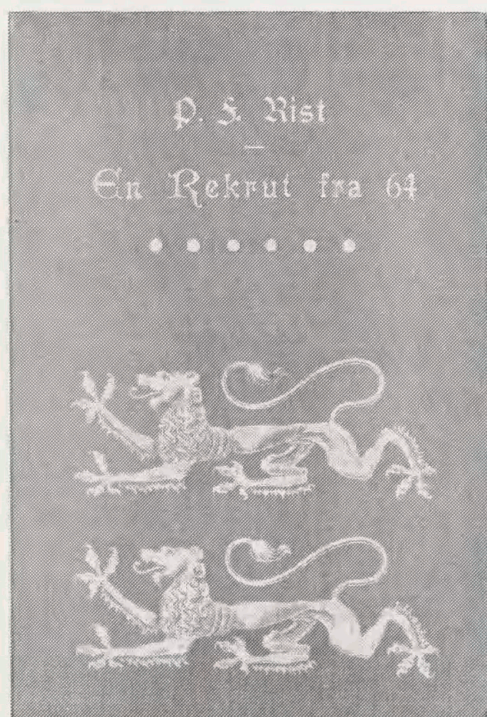 P. F. Rist
—
En Rekrut fra 64